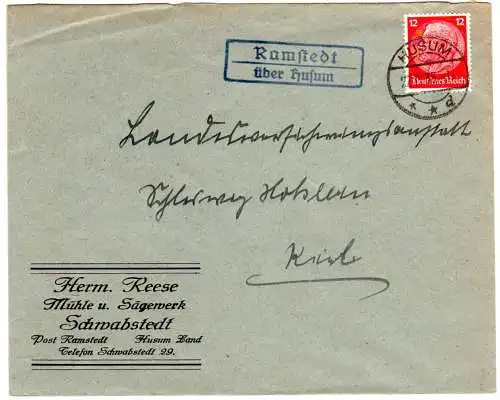 Ramstedt
über Husum
12 12
Deutsches Reich
HUSUM
* * d
Landesversicherungsanstalt
Schleswig Holstein
Kiel
Herm. Reese
Mühle u. Sägewerk
Schwabstedt
Post Ramstedt Husum Land
Telefon Schwabstedt 29.